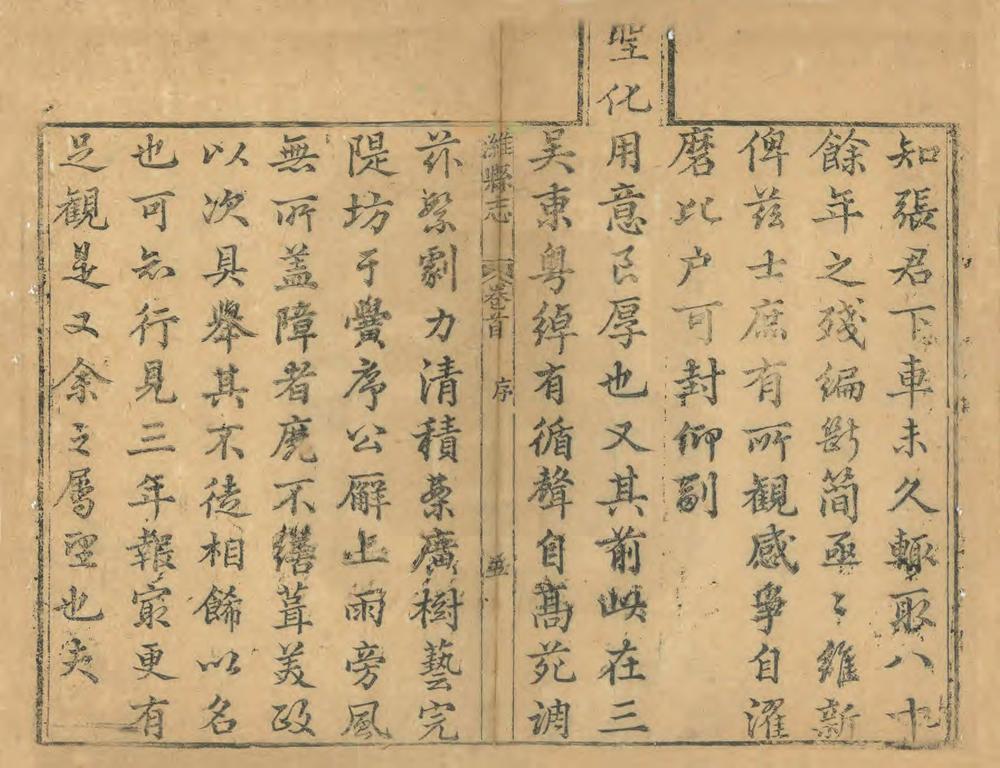 知張君下車未久輙取八十
餘年之殘編斷簡亟〻維新
俾兹士庶有所觀感爭自濯
磨比户可封仰副
聖化
用意良厚也又其前峡在三
吴東粤綽有循聲自髙苑調
濰縣志 卷首 序 五
茲繁劇力清積橐廣樹藝完
隄坊于黌序公廨上雨旁風
無所盖障者麂不繕葺美政
以次具舉其不徒相餙以名
也可知行見三年報最更有
足觀是又余之屬望也夫